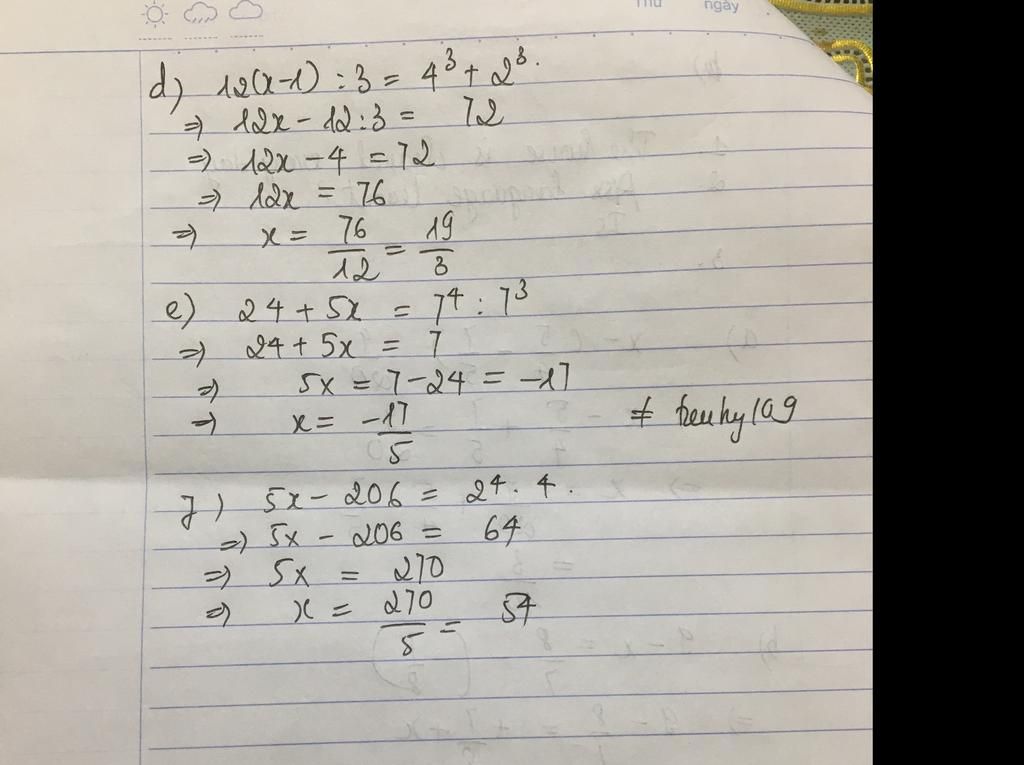 Thứ ngày
d) 12(x-1) : 3 = 4³ + 2³.
⇒ 12x - 12:3 = 72
⇒ 12x - 4 = 72
⇒ 12x = 76
⇒ x = 76/12 = 19/3
e) 24 + 5x = 7⁴ : 7³
⇒ 24 + 5x = 7
⇒ 5x = 7 - 24 = -17
⇒ x = -17/5
j) 5x - 206 = 2⁴ . 4.
⇒ 5x - 206 = 64
⇒ 5x = 270
⇒ x = 270/5 = 54